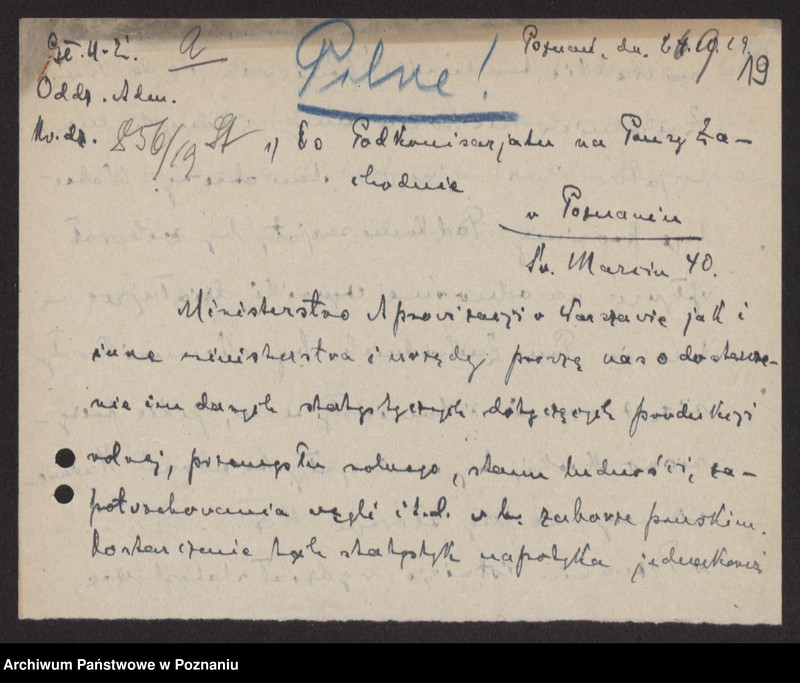 Oddz. Adm.
Pilne!
Poznań, dn. 19.
19
No. dz. 856/19 St
1) Do Podkomisarjatu na Prusy Za-
chodnie
w Poznaniu
Św. Marcin 40.
Ministerstwo Aprowizacji w Warszawie jak i
inne ministerstwa i urzędy proszą nas o dostarcze-
nie im danych statystycznych dotyczących produkcji
rolnej, przemysłu rolnego, stanu ludności, za-
potrzebowania węgli i t.d. w b. zaborze pruskim.
Dostarczenie tych statystyk napotyka jednakowoż
Archiwum Państwowe w Poznaniu